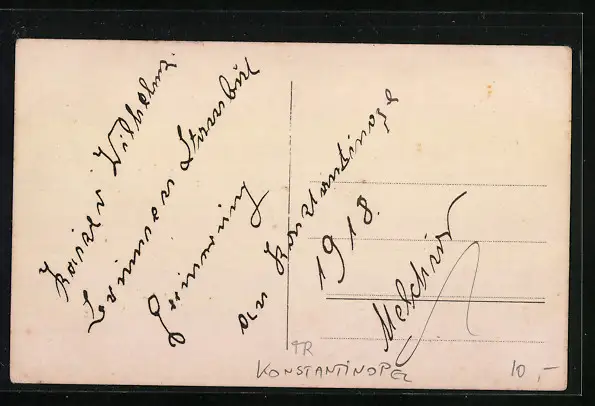 Kaiser Wilhelm
Brunnen Stambul
Erinnerung
an Konstantinopel
1918.
Melchior
TR
KONSTANTINOPEL
10,-